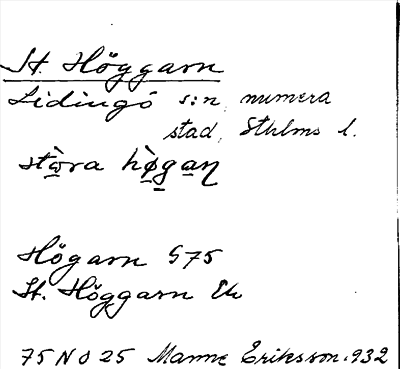 St. Höggarn
Lidingö s:n, numera
stad, Sthlms l.
stò̱ra hø̱̀ga̱ɳ
Högarn G75
St. Höggarn Ek
75 NO 25 Manne Eriksson. 932